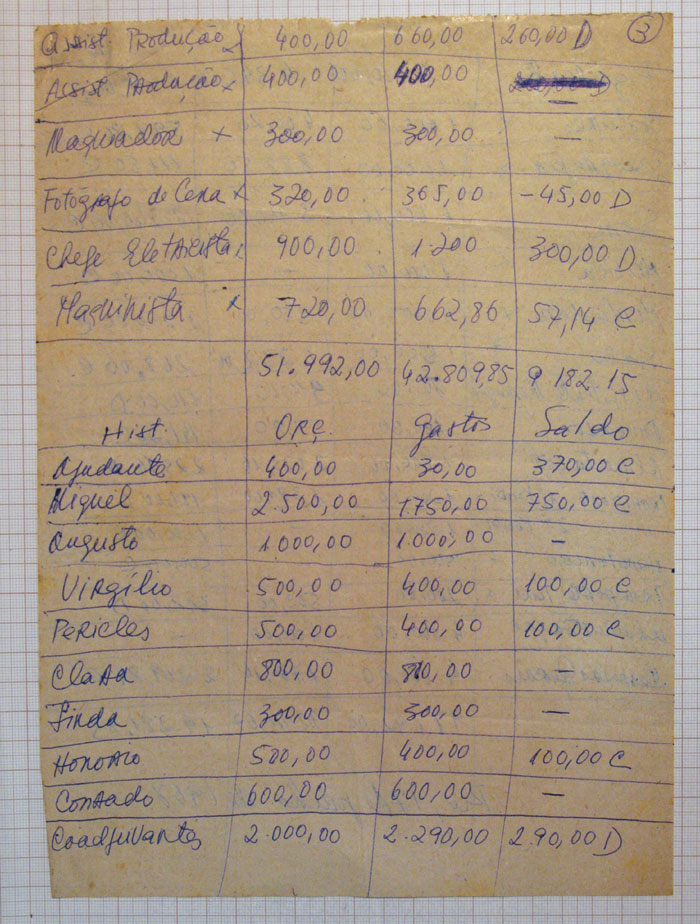 3
Assist Produção x 400,00 660,00 260,00 D
Assist Produção x 400,00 400,00 —
Maquiador + 300,00 300,00 —
Fotógrafo de Cena x 320,00 365,00 -45,00 D
Chefe Eletricista x 900,00 1.200 300,00 D
Maquinista x 720,00 662,86 57,14 C
51.992,00 42.809,85 9.182.15
Hist. Orç. Gastos Saldo
Ajudante 400,00 30,00 370,00 C
Miguel 2.500,00 1750,00 750,00 C
Augusto 1.000,00 1.000,00 —
Virgílio 500,00 400,00 100,00 C
Pericles 500,00 400,00 100,00 C
Clara 800,00 800,00 —
Linda 300,00 300,00 —
Honorio 500,00 400,00 100,00 C
Conrado 600,00 600,00 —
Coadjuvantes 2.000,00 2.290,00 290,00 D